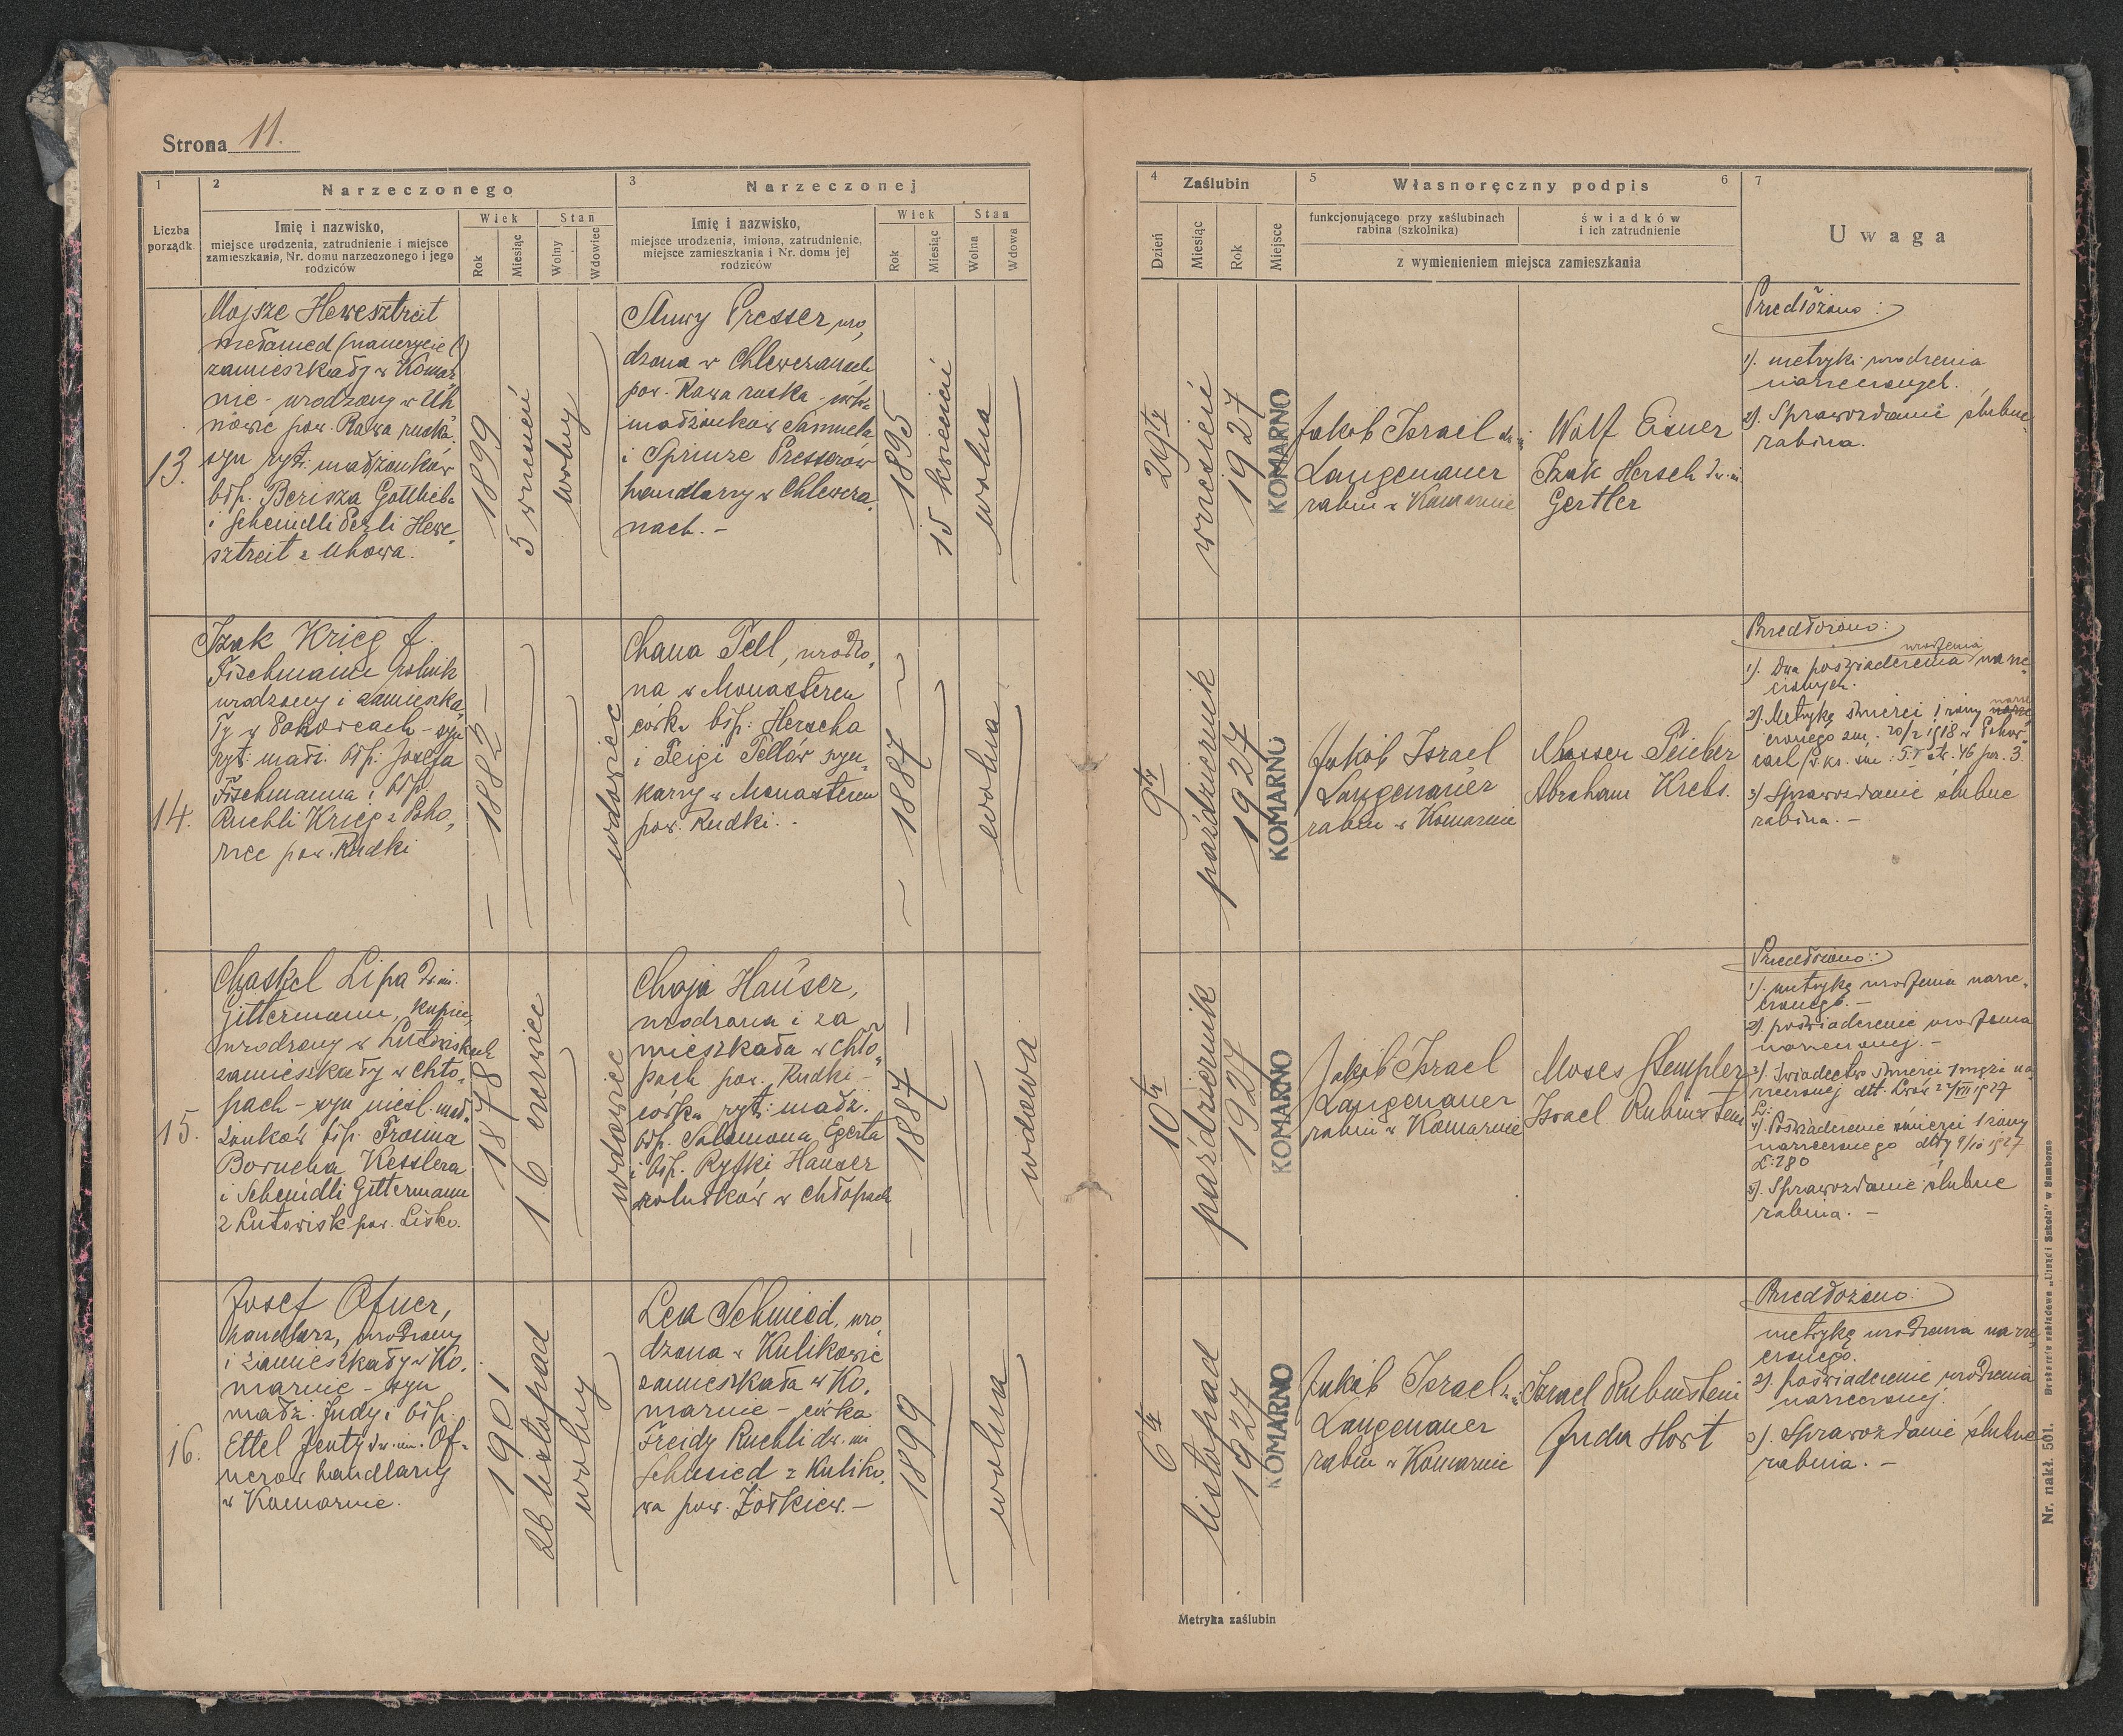 Strona 11.
1
2
Narzeczonego
3
Narzeczonej
Liczba
porządk.
Imię i nazwisko,
miejsce urodzenia, zatrudnienie i miejsce
zamieszkania, Nr. domu narzeczonego i jego
rodziców
Wiek
Rok
Miesiąc
Stan
Wolny
Wdowiec
Imię i nazwisko,
miejsce urodzenia, imiona, zatrudnienie,
miejsce zamieszkania i Nr. domu jej
rodziców
Wiek
Rok
Miesiąc
Stan
Wolna
Wdowa
4
Zaślubin
Dzień
Miesiąc
Rok
Miejsce
5
Własnoręczny podpis
6
funkcjonującego przy zaślubinach
rabina (szkolnika)
świadków
i ich zatrudnienie
z wymienieniem miejsca zamieszkania
7
Uwaga
13.
Mojsze Hewesztreit
zamieszkały w Komar
nie - urodzony w Uh
nowie pow. Rawa ruska,
syn ryt. małżonków
błp. Berisza Gottlieba
i Scheindli Perli Hewe
sztreit z Uhowa.
1899
5 wrzesień
wolny
Presser uro,
dzona w Chlewczanach
pow. Rawa ruska - córka
małżonków Samuela
i Sprinze Presserów
handlarzy w Chlewcza,
nach. -
1895
15 kwiecień
wolna
29ty
wrzesień
1927
KOMARNO
Jakób Israel
Langenauer
rabin w Komarnie
Wolf Eisner
Izak Hersch dw. im.
Gertler
Przedłożono:
1). metryki urodzenia
narzeczonych.
2). Sprawozdanie ślubne
rabina.
14.
Izak Krieg f.
Fischmann rolnik
urodzony i zamieszka,
ły w Pohorcach - syn
ryt. małż. błp. Josefa
Fischmanna i błp.
Ruchli Krieg z Poho,
rzec pow. Rudki
- 1882 -
wdowiec
Chana Tell, urodzo,
na w Monastercu
córka błp. Herscha
i Feigi Tellów
w Monastercu
pow. Rudki. -
1887
wolna
9ty
październik
1927
KOMARNO
Jakób Israel
Langenauer
rabin w Komarnie
Teicher
Abraham Krebs.
Przedłożono:
urodzenia
1). Dwa poświadczenia narze
czonych.
2). Metrykę śmierci I żony
czonego
3) Sprawozdanie ślubne
rabina. -
15.
Chaskel Lipa dw. im.
Gittermann, kupiec,
urodzony w Lutowiskach
zamieszkały w Chło,
pach - syn nieśl. mał,
żonków błp. Froima
Borucha Kesslera
i Scheindli Gittermann
z Lutowisk pow. Lisko.
1878
16 czerwiec
wdowiec
Chaja Hauser,
urodzona i za
mieszkała w Chło,
pach pow. Rudki -
córka ryt. małż.
błp. Salamona Egerta
i błp. Ryfki Hauser
w Chłopach
1887 -
wdowa
10ty
październik
1927
KOMARNO
Jakób Israel
Langenauer
rabin w Komarnie
Moses Stempler
Israel Rubinstein
Przedłożono:
1). metrykę urodzenia narze,
czonego. -
2). poświadczenie urodzenia
narzeczonej. -
3). Świadectwo śmierci I męża na
rzeczonej
4). Poświadczenie śmierci I żony
narzeczonego
L: 280
5). Sprawozdanie ślubne
rabina. -
16.
Josef Ofner,
handlarz, urodzony
i zamieszkały w Ko,
marnie - syn
małż. Judy i błp.
Ettel Jenty dw. im. Of,
nerów handlarzy
w Komarnie.
1901
26 listopad
wolny
Lea Schmied, uro
dzona w Kulikowie
zamieszkała w Ko,
marnie - córka
Freidy Ruchli dw. im
Schmied z Kuliko,
wa pow. Żółkiew. -
1899
wolna
6ty
listopad
1927
KOMARNO
Jakób Israel
Langenauer
rabin w Komarnie
Israel Rubinstein
Juda Hort
Przedłożono:
metrykę urodzenia narze
czonego.
2). poświadczenie urodzenia
narzeczonej.
3). Sprawozdanie ślubne
rabina. -
Metryka zaślubin
Nr. nakł. 501.